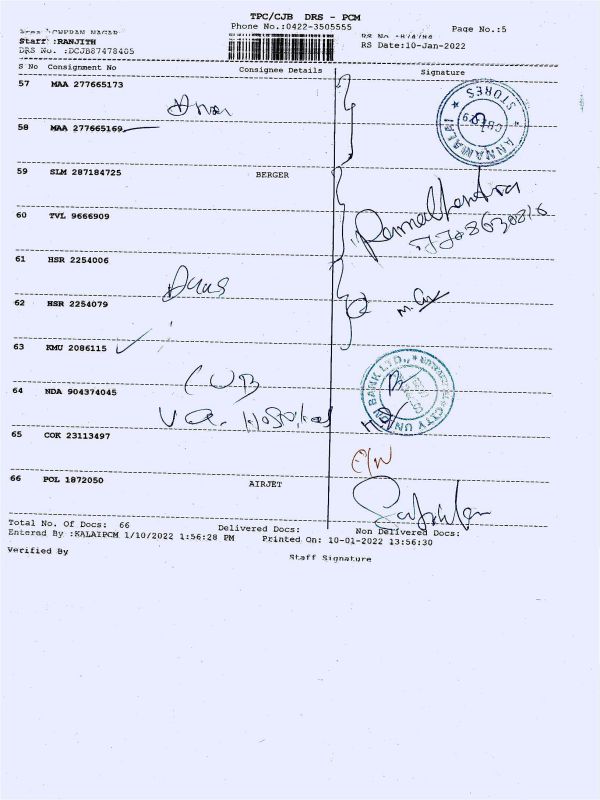 TPC/CJB DRS - PCM
Phone No.:0422-3505555
Page No.:5
Staff :RANJITH
DRS No. :DCJB87478405
RS Date:10-Jan-2022
S No Consignment No Consignee Details Signature
57 MAA 277665173
58 MAA 277665169
ANNAMALAI STORES
59 SLM 287184725 BERGER
60 TVL 9666909
61 HSR 2254006
62 HSR 2254079
63 KMU 2086115
CUB
64 NDA 904374045
CITY UNION BANK LTD.,
65 COK 23113497
66 POL 1872050 AIRJET
Total No. Of Docs: 66 Delivered Docs: Non Delivered Docs:
Entered By :KALAIPCM 1/10/2022 1:56:28 PM Printed On: 10-01-2022 13:56:30
Verified By Staff Signature